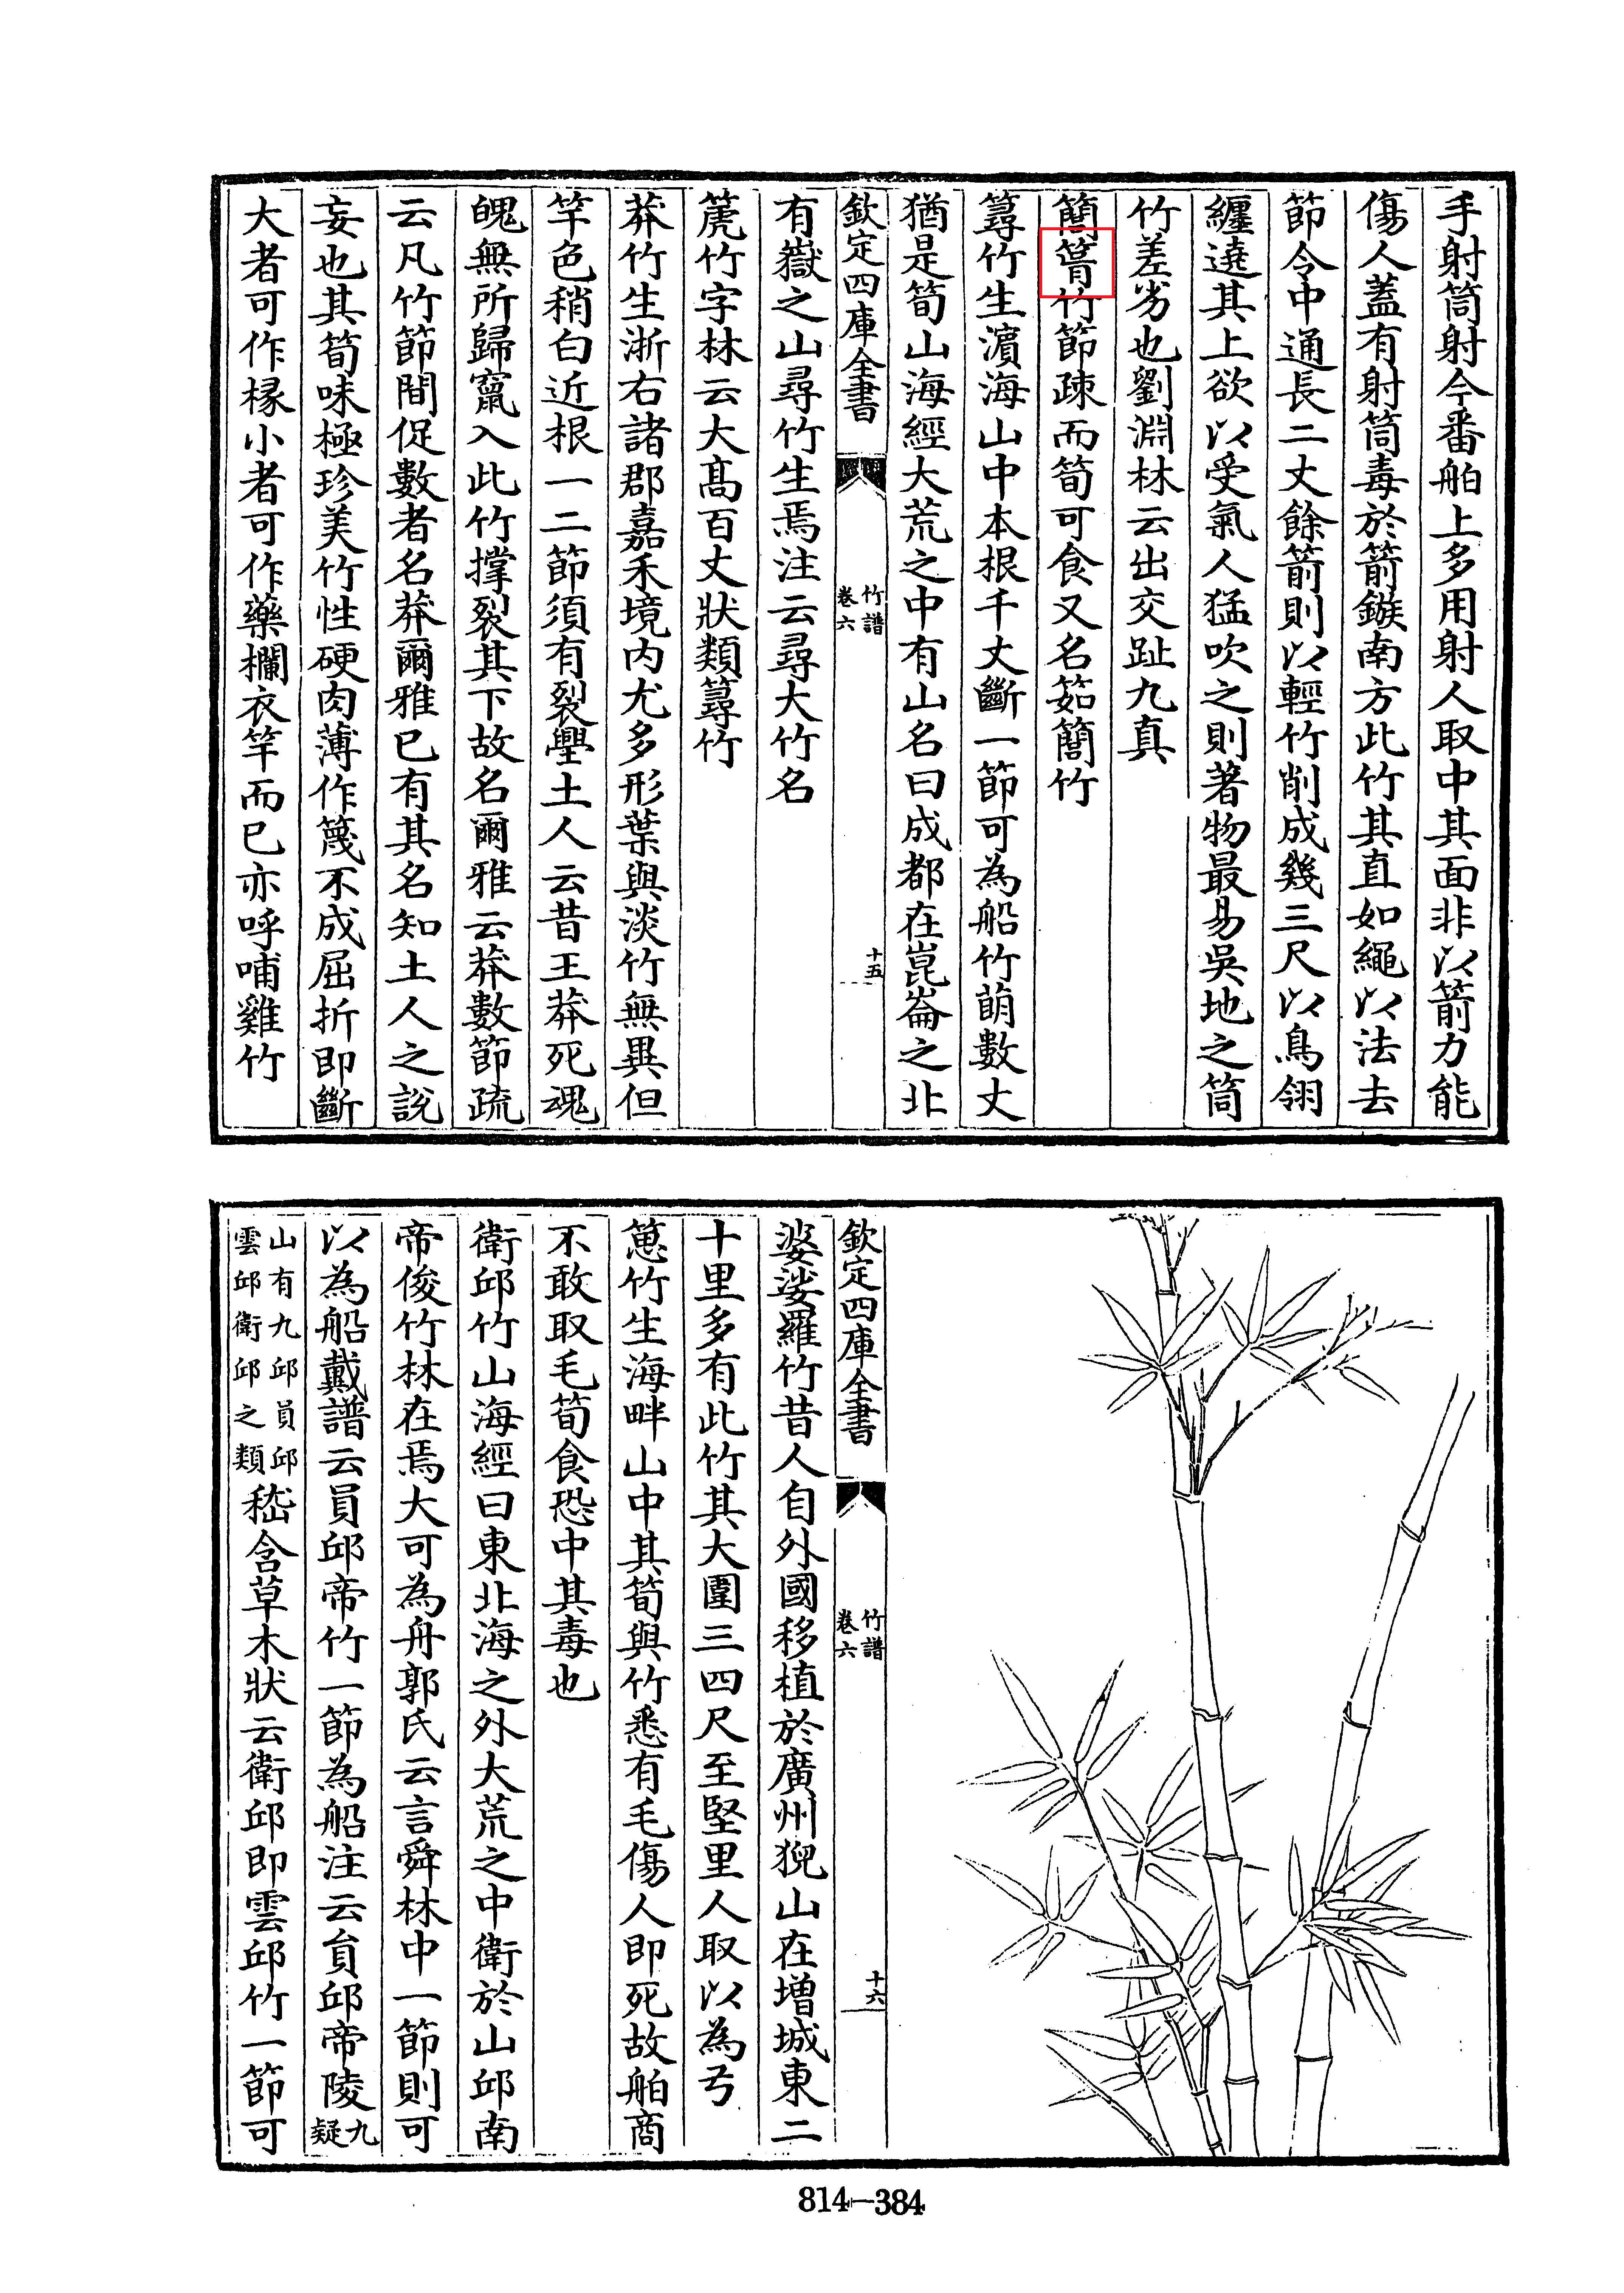 手射筒射今番舶上多用射人取中其面非以箭力能
傷人蓋有射筒毒於箭鏃南方此竹其直如繩以法去
節令中通長二丈餘箭則以輕竹削成幾三尺以鳥翎
纏遶其上欲以受氣人猛吹之則著物最易吳地之筒
竹差劣也劉淵林云出交趾九真
簡竹節疎而筍可食又名茹簡竹
簟竹生濵海山中本根千丈斷一節可為船竹萌數丈
猶是筍山海經大荒之中有山名曰成都在崑崙之北
欽定四庫全書
竹譜
卷六
十五
有嶽之山尋竹生焉注云尋大竹名
箎竹字林云大髙百丈狀類簟竹
莽竹生浙右諸郡嘉禾境内尤多形葉與淡竹無異但
竿色稍白近根一二節須有裂璺土人云昔王莽死魂
魄無所歸竄入此竹撑裂其下故名爾雅云莽數節疏
云凡竹節間促數者名莽爾雅已有其名知土人之説
妄也其筍味極珍美竹性硬肉薄作篾不成屈折即斷
大者可作椽小者可作藥欄衣竿而已亦呼哺雞竹
欽定四庫全書
竹譜
卷六
十六
婆娑羅竹昔人自外國移植於廣州猊山在増城東二
十里多有此竹其大圍三四尺至堅里人取以為弓
篦竹生海畔山中其筍與竹悉有毛傷人即死故舶商
不敢取毛筍食恐中其毒也
衛邱竹山海經曰東北海之外大荒之中衛於山邱南
帝俊竹林在焉大可為舟郭氏云言舜林中一節則可
以為船戴譜云員邱帝竹一節為船注云員邱帝陵九疑
山有九邱員邱雲邱衛邱之類嵇含草木狀云衛邱即雲邱竹一節可
814—384